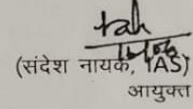 (संदेश नायक, IAS)
आयुक्त